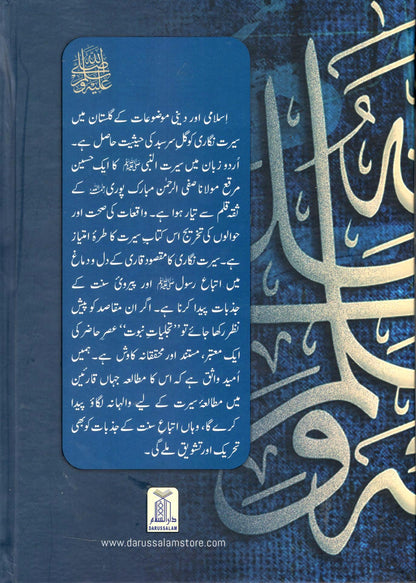 صلى الله عليه وسلم
اسلامی اور دینی موضوعات کے گلستان میں
سیرت نگاری کو گلِ سرسبد کی حیثیت حاصل ہے۔
اُردو زبان میں سیرت النبی ﷺ کا ایک حسین
مرقع مولانا صفی الرحمٰن مبارک پوری رحمہ اللہ کے
ثقہ قلم سے تیار ہوا ہے۔ واقعات کی صحت اور
حوالوں کی تخریج اس کتاب سیرت کا طرۂ امتیاز
ہے۔ سیرت نگاری کا مقصود قاری کے دل و دماغ
میں اتباع رسول ﷺ اور پیرویٔ سنت کے
جذبات پیدا کرنا ہے۔ اگر ان مقاصد کو پیش
نظر رکھا جائے تو ’’تجلیاتِ نبوت‘‘ عصرِ حاضر کی
ایک معتبر، مستند اور محققانہ کاوش ہے۔ ہمیں
اُمید واثق ہے کہ اس کا مطالعہ جہاں قارئین
میں مطالعۂ سیرت کے لیے والہانہ لگاؤ پیدا
کرے گا، وہاں اتباعِ سنت کے جذبات کو بھی
تحریک اور تشویق ملے گی۔
دارالسلام
DARUSSALAM
www.darussalamstore.com